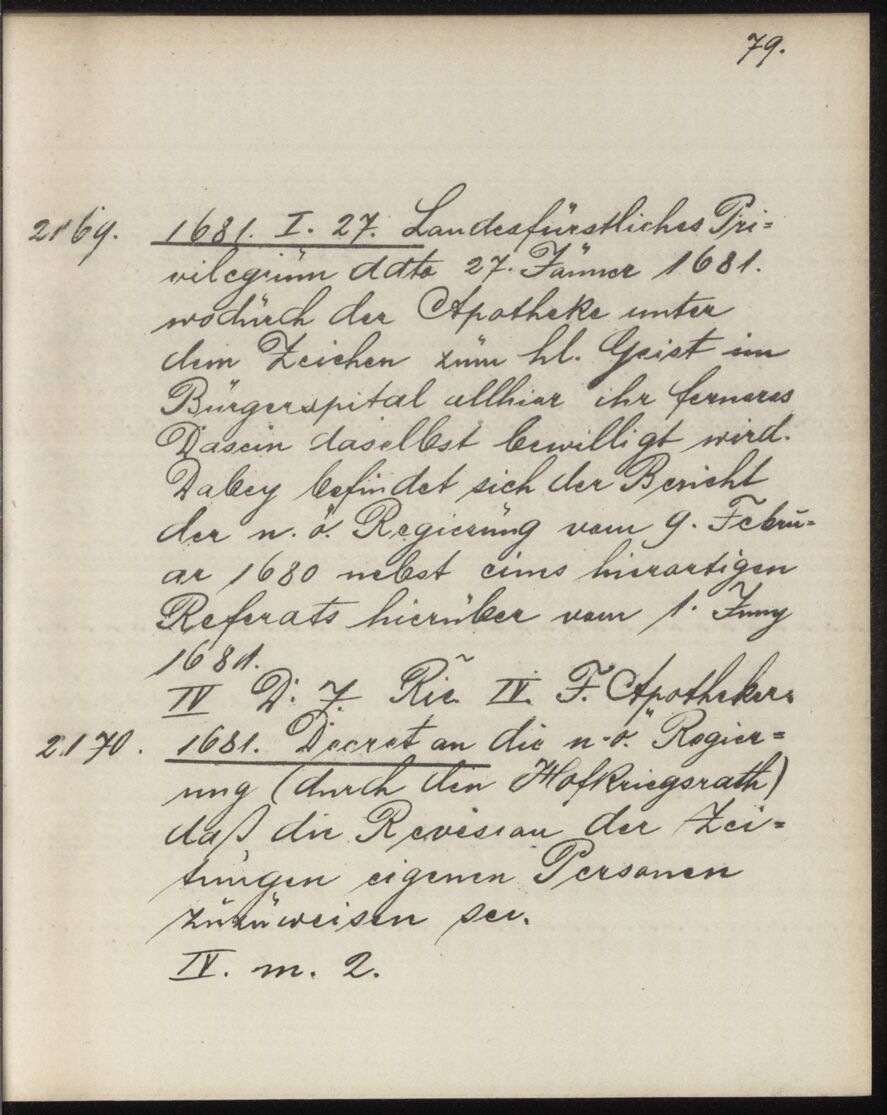 79.
2169. 1681. I. 27. Landesfürstliches Pri=
vilegium ddto 27. Jänner 1681.
wodurch der Apotheke unter
dem Zeichen zum hl. Geist im
Bürgerspital allhier ihr ferneres
Dasein daselbst bewilligt wird.
Dabey befindet sich der Bericht
der n. ö. Regierung vom 9. Febru=
ar 1680 nebst eines hierartigen
Referats hierüber vom 1. Juny
1681.
IV D. 7. Ric. IV. F. Apotheker.
2170. 1681. Decret an die n. ö. Regier=
ung (durch den Hofkriegsrath)
daß die Revision der Zei=
tungen eigenen Personen
zuzuweisen sei.
IV. m. 2.